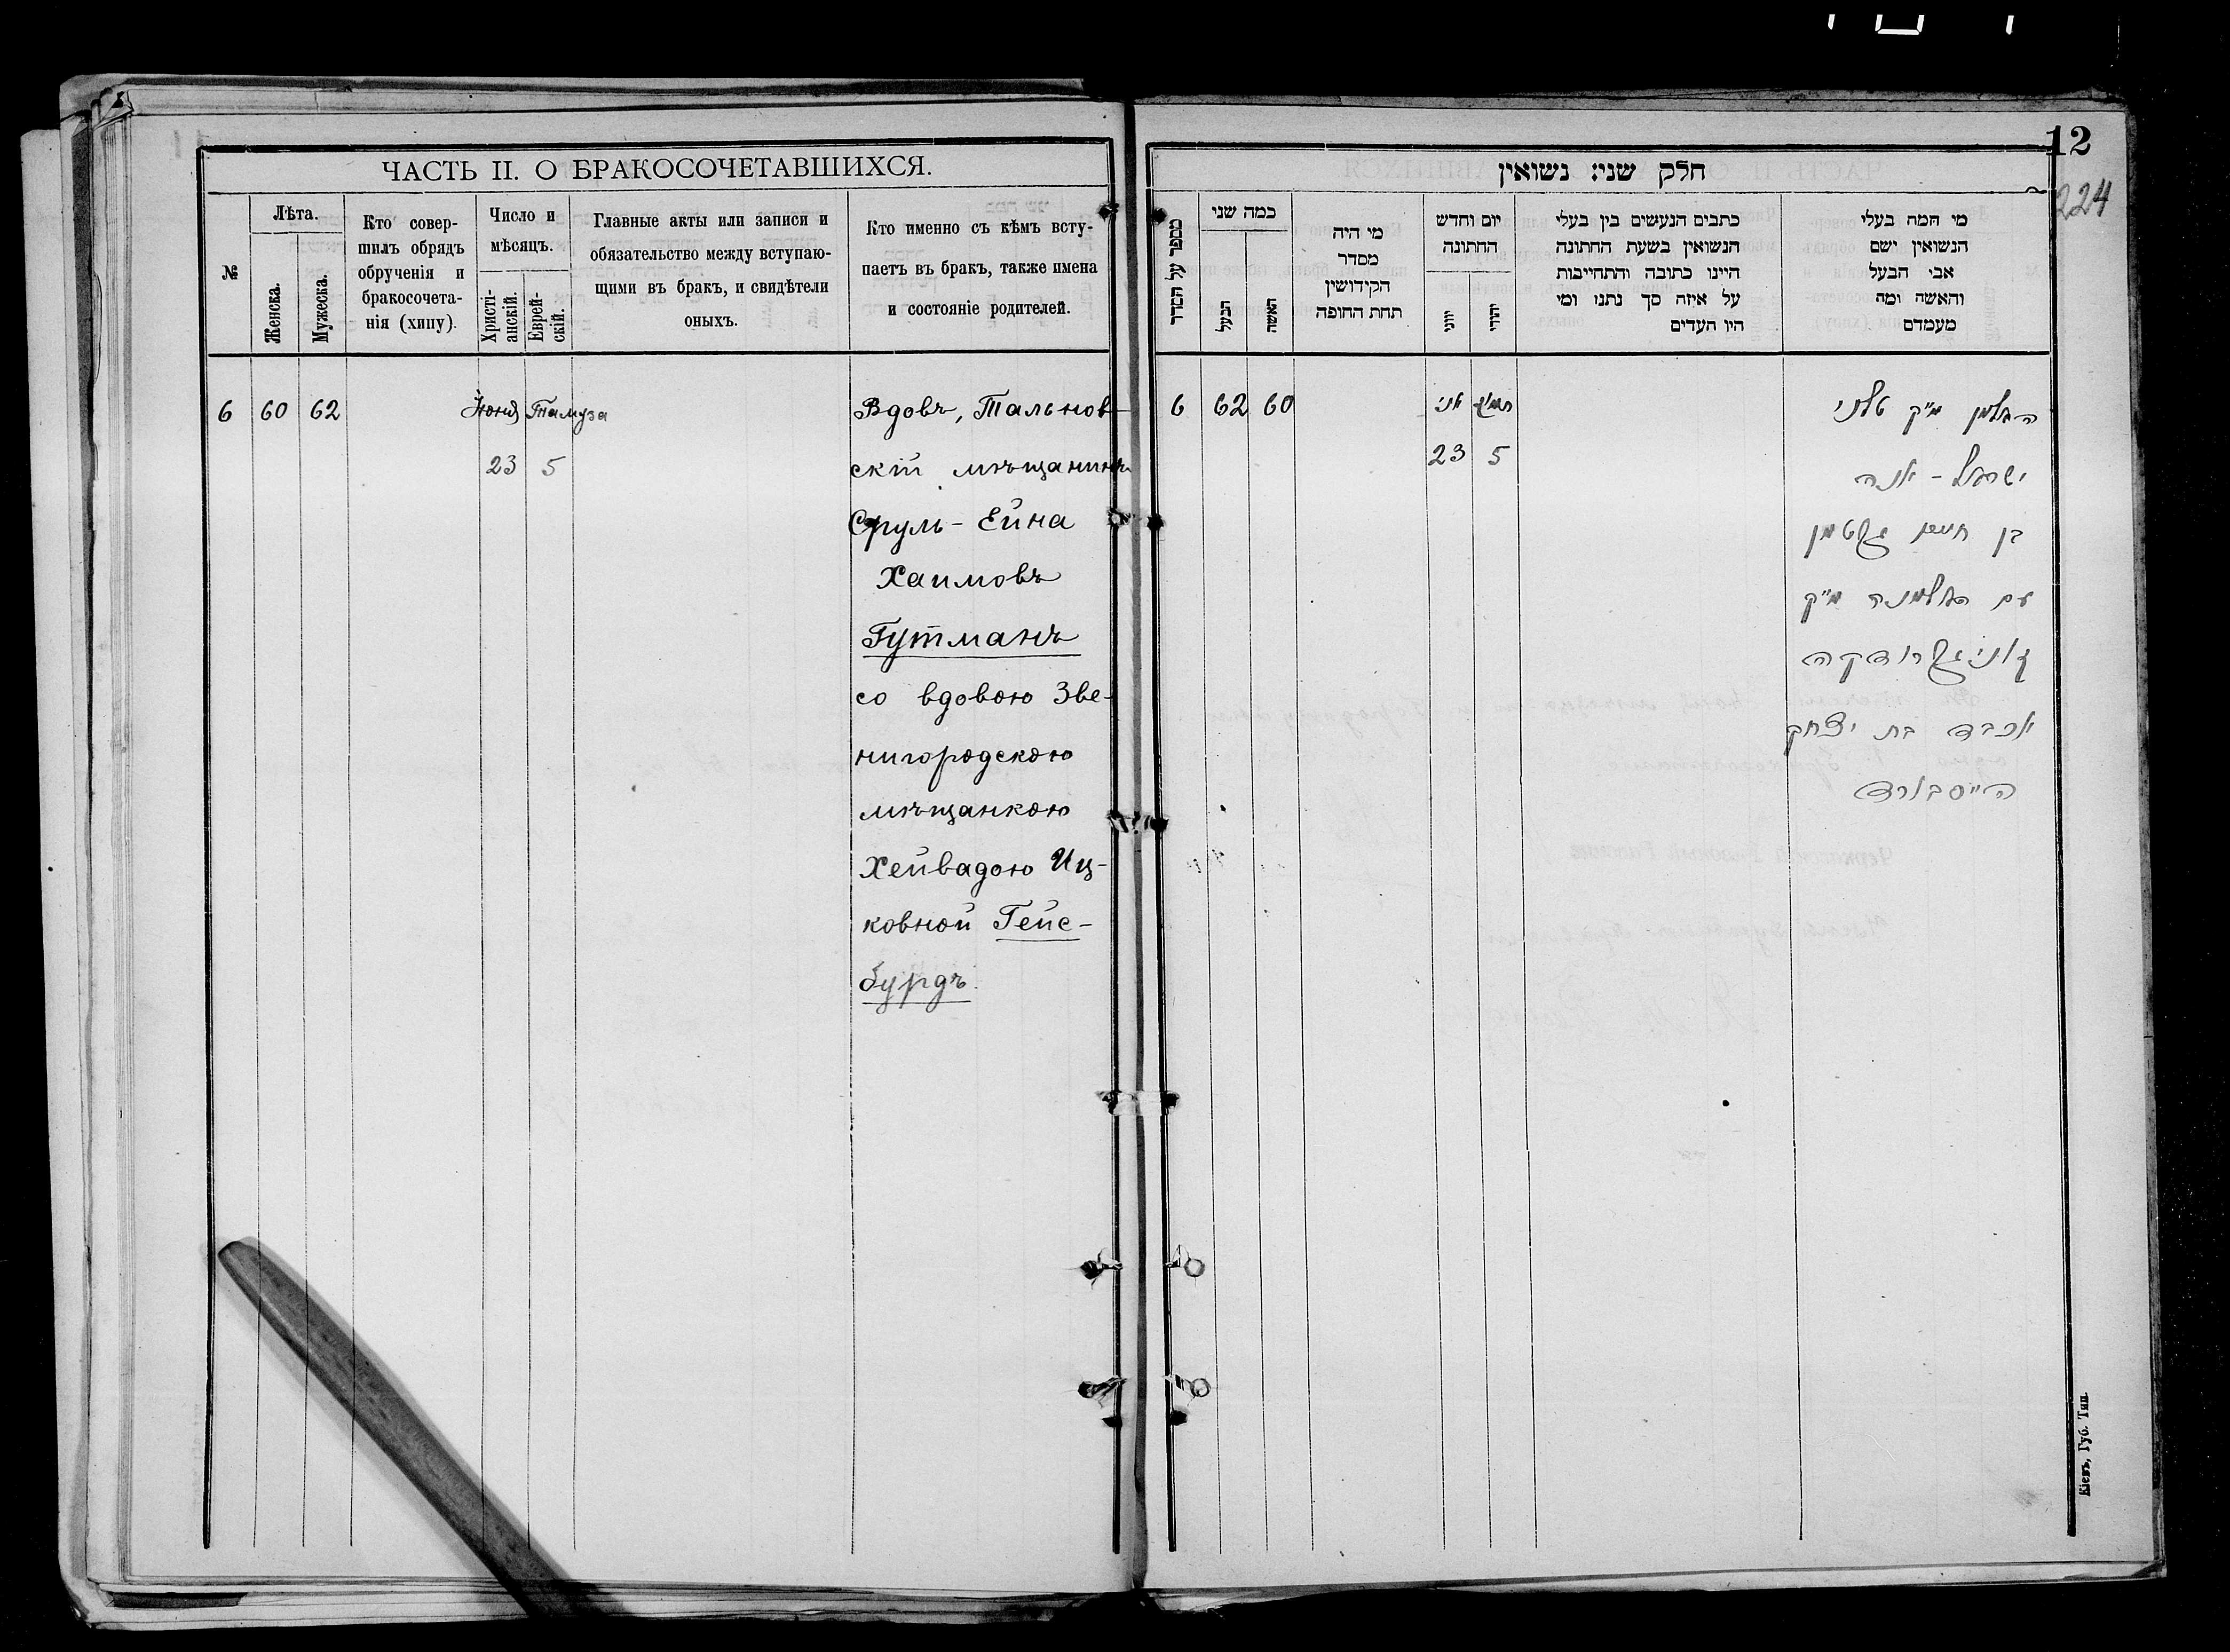 12
224
ЧАСТЬ II. О БРАКОСОЧЕТАВШИХСЯ.
№
Лѣта.
Женска.
Мужеска.
Кто совер-
шилъ обрядъ
обрученія и
бракосочета-
нія (хипу).
Число и
мѣсяцъ.
Христі-
анскій.
Еврей-
скій.
Главные акты или записи и
обязательство между вступаю-
щими въ бракъ, и свидѣтели
оныхъ.
Кто именно съ кѣмъ всту-
паетъ въ бракъ, также имена
и состояніе родителей.
6 60 62 Июня Тамуза
23 5
Вдовъ, Тальнов-
скій мѣщанинъ
Сруль-Ейна
Хаимовъ
Гутманъ
со вдовою Зве-
нигородскою
мѣщанкою
Хейвадою Иц-
ковной Гейс-
бурдъ
חלק שני: נשואין
מספר על הסדר
כמה שני
הבעל
האשה
מי היה
מסדר
הקידושין
תחת החופה
יום וחדש
החתונה
יוני
יהודי
כתבים הנעשים בין בעלי
הנשואין בשעת החתונה
היינו כתובה והתחייבות
על איזה סך נתנו ומי
היו העדים
מי המה בעלי
הנשואין ושם
אבי הבעל
והאשה ומה
מעמדם
6 62 60 יוני תמוז
23 5
האלמן מ״ק טלני
ישראל - יונה
בן חיים גוטמן
עם האלמנה מ״ק
זוניגורודקה
יוכבד בת יצחק
הייסבורד
Кіевъ, Губ. Тип.